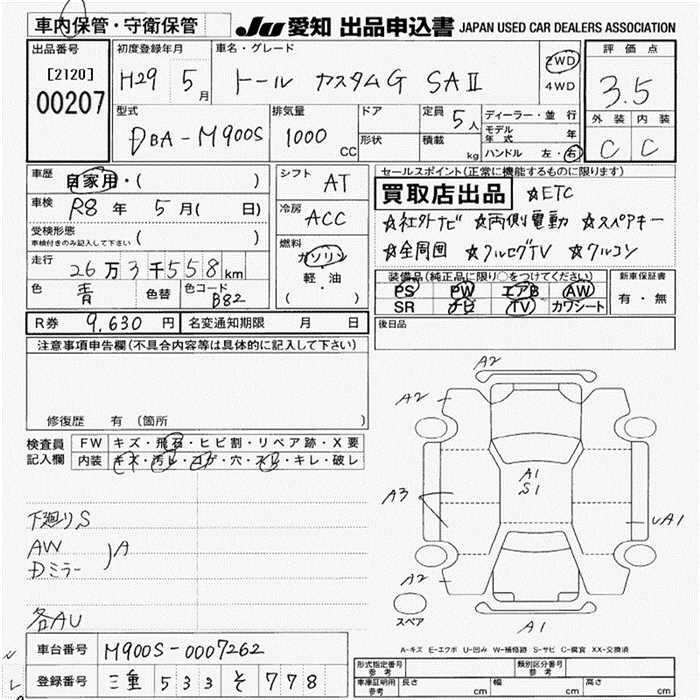 車内保管・守衛保管
JU 愛知 出品申込書 JAPAN USED CAR DEALERS ASSOCIATION
出品番号
[2120]
00207
初度登録年月
H29 5月
車名・グレード
トール カスタムG SAⅡ
2WD
4WD
評価点
3.5
外装 内装
C C
型式
DBA-M900S
排気量
1000 CC
ドア
形状
定員 5人
積載 kg
ディーラー・並行
モデル年式 年
ハンドル 左・右
車歴
自家用・( )
車検
R8年 5月( 日)
受検形態
車検付きのみ記入して下さい ( )
走行
26万3千558km
色
青
色替
色コード
B82
シフト
AT
冷房
ACC
燃料
ガソリン
軽・油
( )
セールスポイント(正常に機能するものに限ります)
買取店出品 ☆ETC
☆社外ナビ ☆両側電動 ☆スペアキー
☆全周囲 ☆フルセグTV ☆クルコン
装備品(純正品に限り〇をつけてください)
PS PW エアB AW
SR ナビ TV カワシート
新車保証書
有・無
R券 9,630円
名変通知期限 月 日
後日品
注意事項申告欄(不具合内容等は具体的に記入して下さい)
修復歴 有 (箇所 )
検査員記入欄
FW キズ・飛石・ヒビ割・リペア跡・X要
内装 キズ・汚レ・コゲ・穴・スレ・キレ・破レ
下廻りS
AW
Dミラー
A
各AU
A2
A2
A1
S1
A3
UA1
A2
A1
スペア
A-キズ E-エクボ U-凹み W-補修跡 S-サビ C-腐食 XX-交換済
車台番号 M900S-0007262
登録番号 三重 533 そ 778
形式指定番号 参考
類別区分番号 参考
車庫証明用 参考
長さ cm
幅 cm
高さ cm